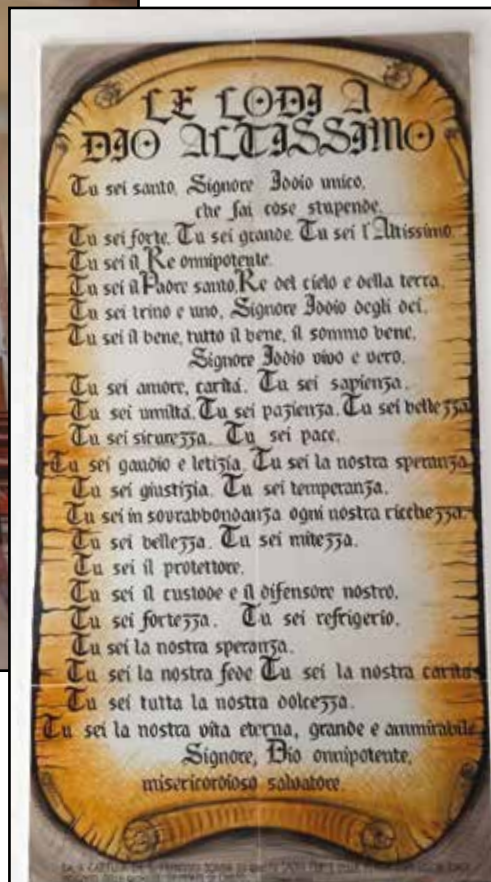 LE LODI A
DIO ALTISSIMO
Tu sei santo, Signore Iddio unico,
che fai cose stupende.
Tu sei forte. Tu sei grande. Tu sei l'Altissimo.
Tu sei il Re onnipotente.
Tu sei il Padre santo, Re del cielo e della terra.
Tu sei trino e uno, Signore Iddio degli dei.
Tu sei il bene, tutto il bene, il sommo bene,
Signore Iddio vivo e vero.
Tu sei amore, carità. Tu sei sapienza.
Tu sei umiltà. Tu sei pazienza. Tu sei bellezza.
Tu sei sicurezza. Tu sei pace.
Tu sei gaudio e letizia. Tu sei la nostra speranza.
Tu sei giustizia. Tu sei temperanza.
Tu sei in sovrabbondanza ogni nostra ricchezza.
Tu sei bellezza. Tu sei mitezza.
Tu sei il protettore.
Tu sei il custode e il difensore nostro.
Tu sei fortezza. Tu sei refrigerio.
Tu sei la nostra speranza.
Tu sei la nostra fede Tu sei la nostra carità
Tu sei tutta la nostra dolcezza.
Tu sei la nostra vita eterna, grande e ammirabile
Signore, Dio onnipotente,
misericordioso salvatore.